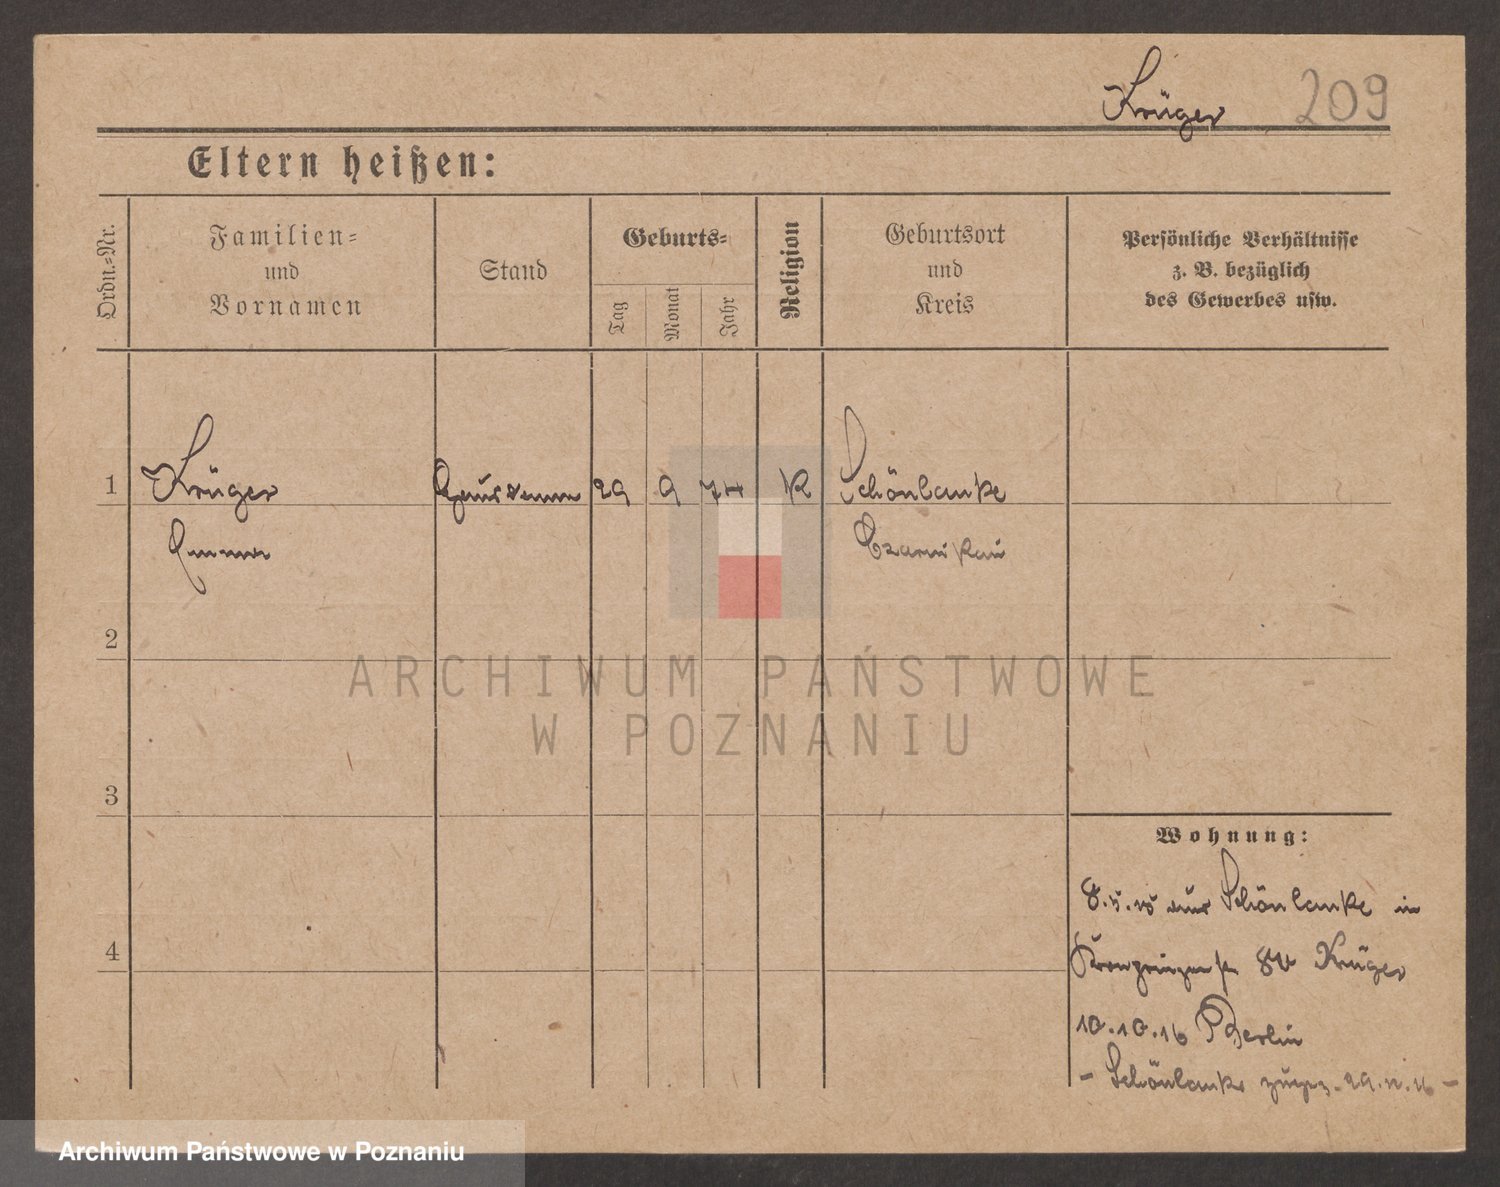 Krüger 209
Eltern heißen:
Ordn.-Nr.
Familien-
und
Vornamen
Stand
Geburts-
Tag
Monat
Jahr
Religion
Geburtsort
und
Kreis
Persönliche Verhältnisse
z. B. bezüglich
des Gewerbes usw.
1 Krüger 29 9 74 K Schönlanke
Emma Czarnikau
2
3
4
Wohnung:
8.5.15 aus Schönlanke in
Kronprinzenstr Krüger
10.10.16 Berlin
- Schönlanke
ARCHIWUM PAŃSTWOWE
W POZNANIU
Archiwum Państwowe w Poznaniu